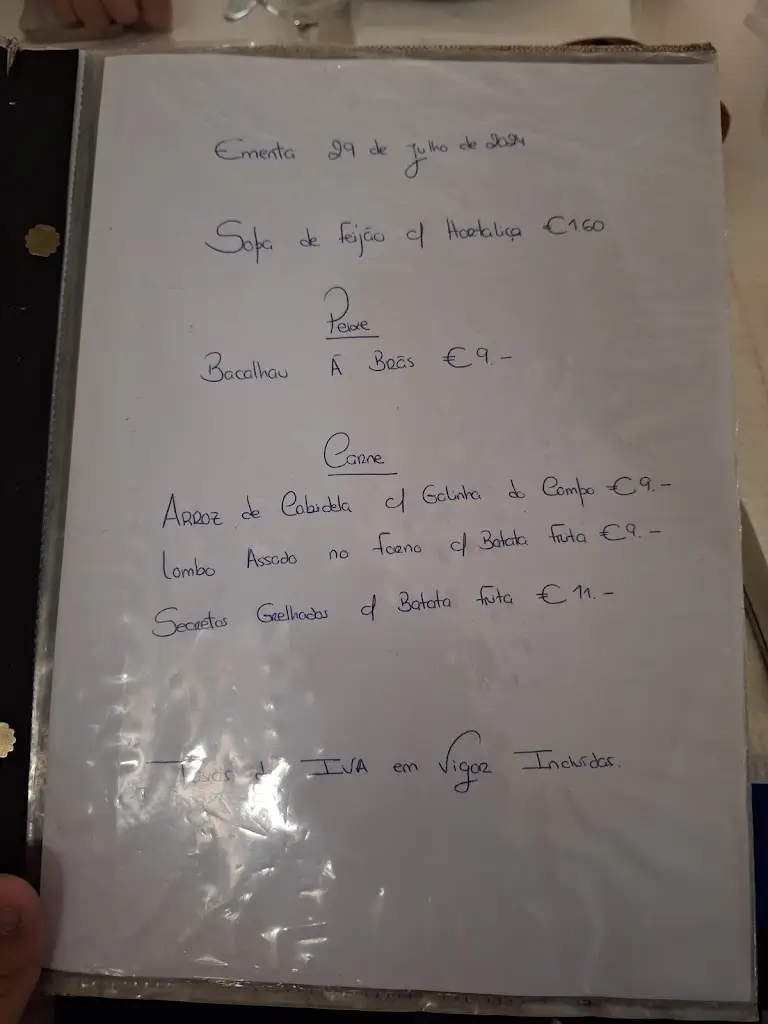 Ementa 29 de Julho de 2024
Sopa de feijão c/ Hortaliça €1.60
Peixe
Bacalhau Á Brás €9.-
Carne
Arroz de Cabidela c/ Galinha do Campo €9.-
Lombo Assado no forno c/ Batata frita €9.-
Secretos Grelhados c/ Batata frita €11.-
Taxas de IVA em Vigor Incluídas.